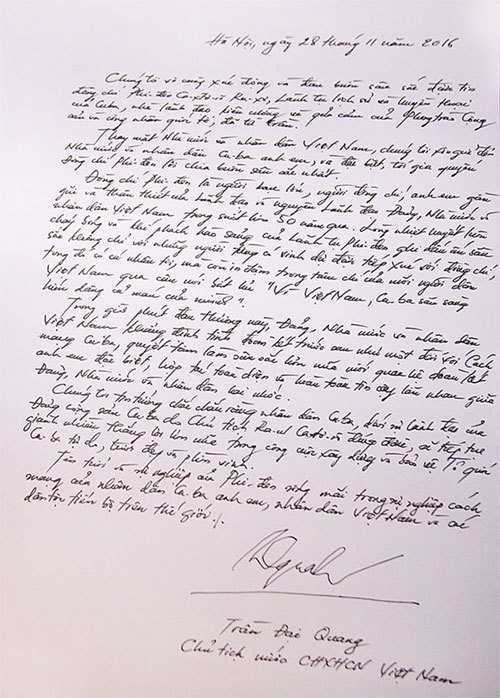 Hà Nội, ngày 28 tháng 11 năm 2016
Chúng tôi vô cùng xúc động và đau buồn sâu sắc được tin
đồng chí Phi-đen Ca-xtơ-rô Ru-xơ, Lãnh tụ lịch sử và huyền thoại
của Cuba, nhà lãnh đạo kiên cường và quả cảm của Phong trào Cộng
sản và công nhân quốc tế, đã từ trần.
Thay mặt Nhà nước và nhân dân Việt Nam, chúng tôi xin gửi đến
Nhà nước và nhân dân Cu-ba anh em, và đặc biệt, tới gia quyến
Đồng chí Phi-đen lời chia buồn sâu sắc nhất.
Đồng chí Phi-đen là người bạn lớn, người đồng chí, anh em gần
gũi và thân thiết của Lãnh đạo và nguyên Lãnh đạo Đảng, Nhà nước và
nhân dân Việt Nam trong suốt hơn 50 năm qua. Lòng nhiệt huyết luôn
cháy bỏng và khí phách hào sảng của Lãnh tụ Phi-đen ghi dấu ấn sâu
sắc không chỉ với những người từng có vinh dự được tiếp xúc với đồng chí
trong đó có cá nhân tôi, mà còn in đậm trong tâm chí của mỗi người dân
Việt Nam qua câu nói bất hủ "Vì Việt Nam, Cu ba sẵn sàng
hiến dâng cả máu của mình".
Trong giờ phút đau thương này, Đảng, Nhà nước và nhân dân
Việt Nam khẳng định tình đoàn kết trước sau như một đối với Cách
mạng Cu-ba, quyết tâm làm sâu sắc hơn nữa mối quan hệ đoàn kết
anh em đặc biệt, hợp tác toàn diện và hoàn toàn tin cậy lẫn nhau giữa
Đảng, Nhà nước và nhân dân hai nước.
Chúng tôi tin tưởng chắc chắn rằng nhân dân Cuba, dưới sự lãnh đạo của
Đảng cộng sản Cu-ba do Chủ tịch Ra-un Castro đứng đầu, sẽ tiếp tục
giành nhiều thắng lợi lớn nữa trong công cuộc xây dựng và bảo vệ Tổ quốc
Cu-ba tự do, tươi đẹp và phồn vinh.
Tên tuổi và sự nghiệp của Phi-đen sống mãi trong sự nghiệp cách
mạng của nhân dân Cu-ba anh em, nhân dân Việt Nam và các
dân tộc tiến bộ trên thế giới./.
Trần Đại Quang
Chủ tịch nước CHXHCN Việt Nam